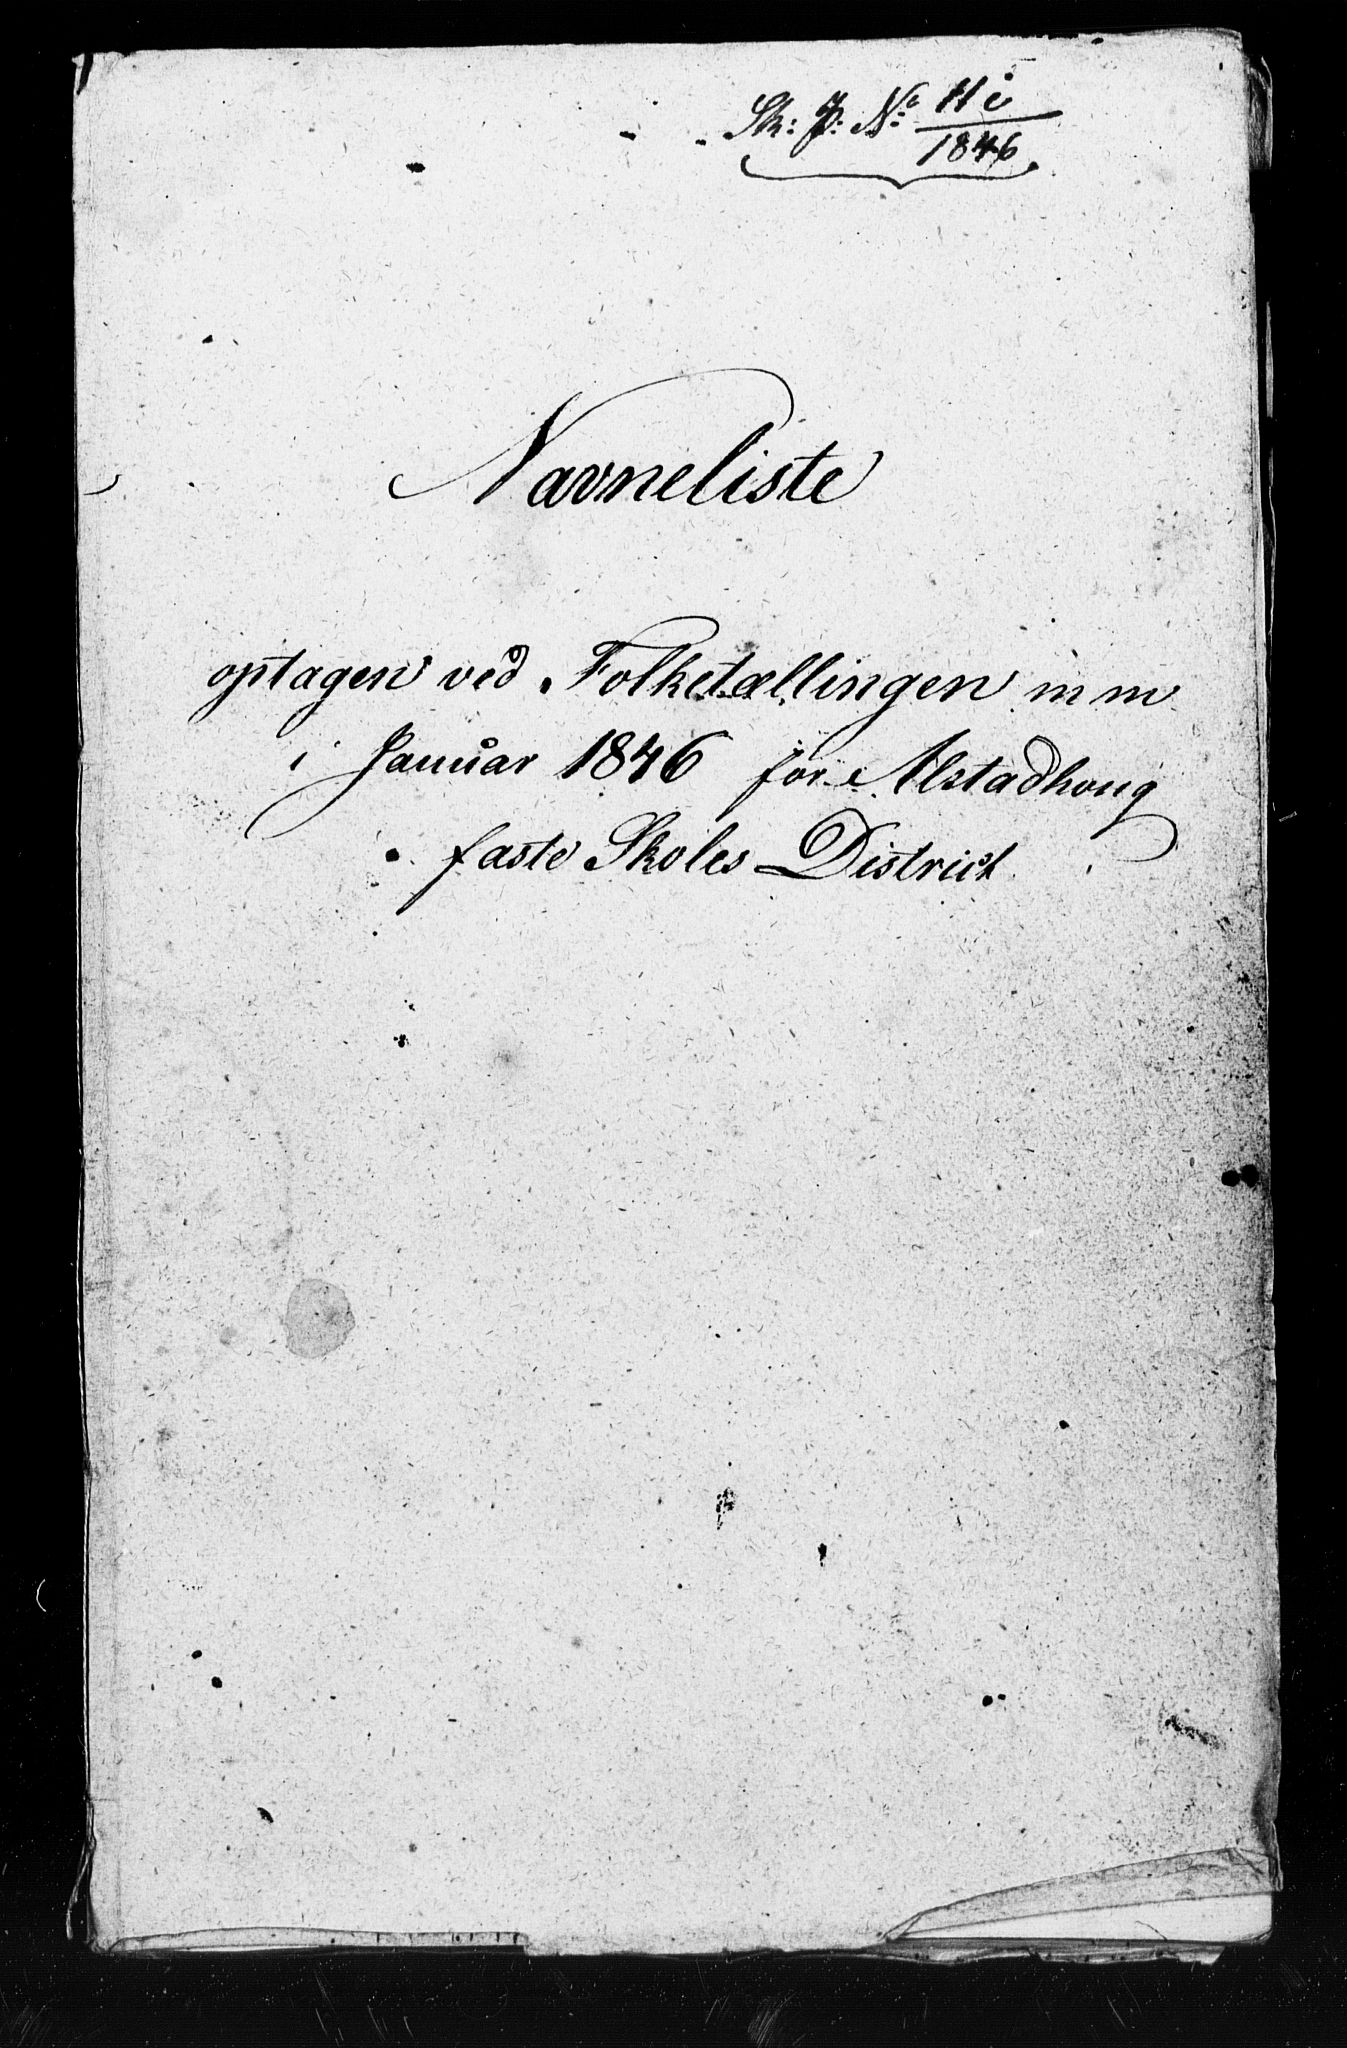 Sk: P: No 11 i
1846
Navneliste
optagen ved Folketællingen m m
i Januar 1846 for Alstadhoug
faste Skoles District